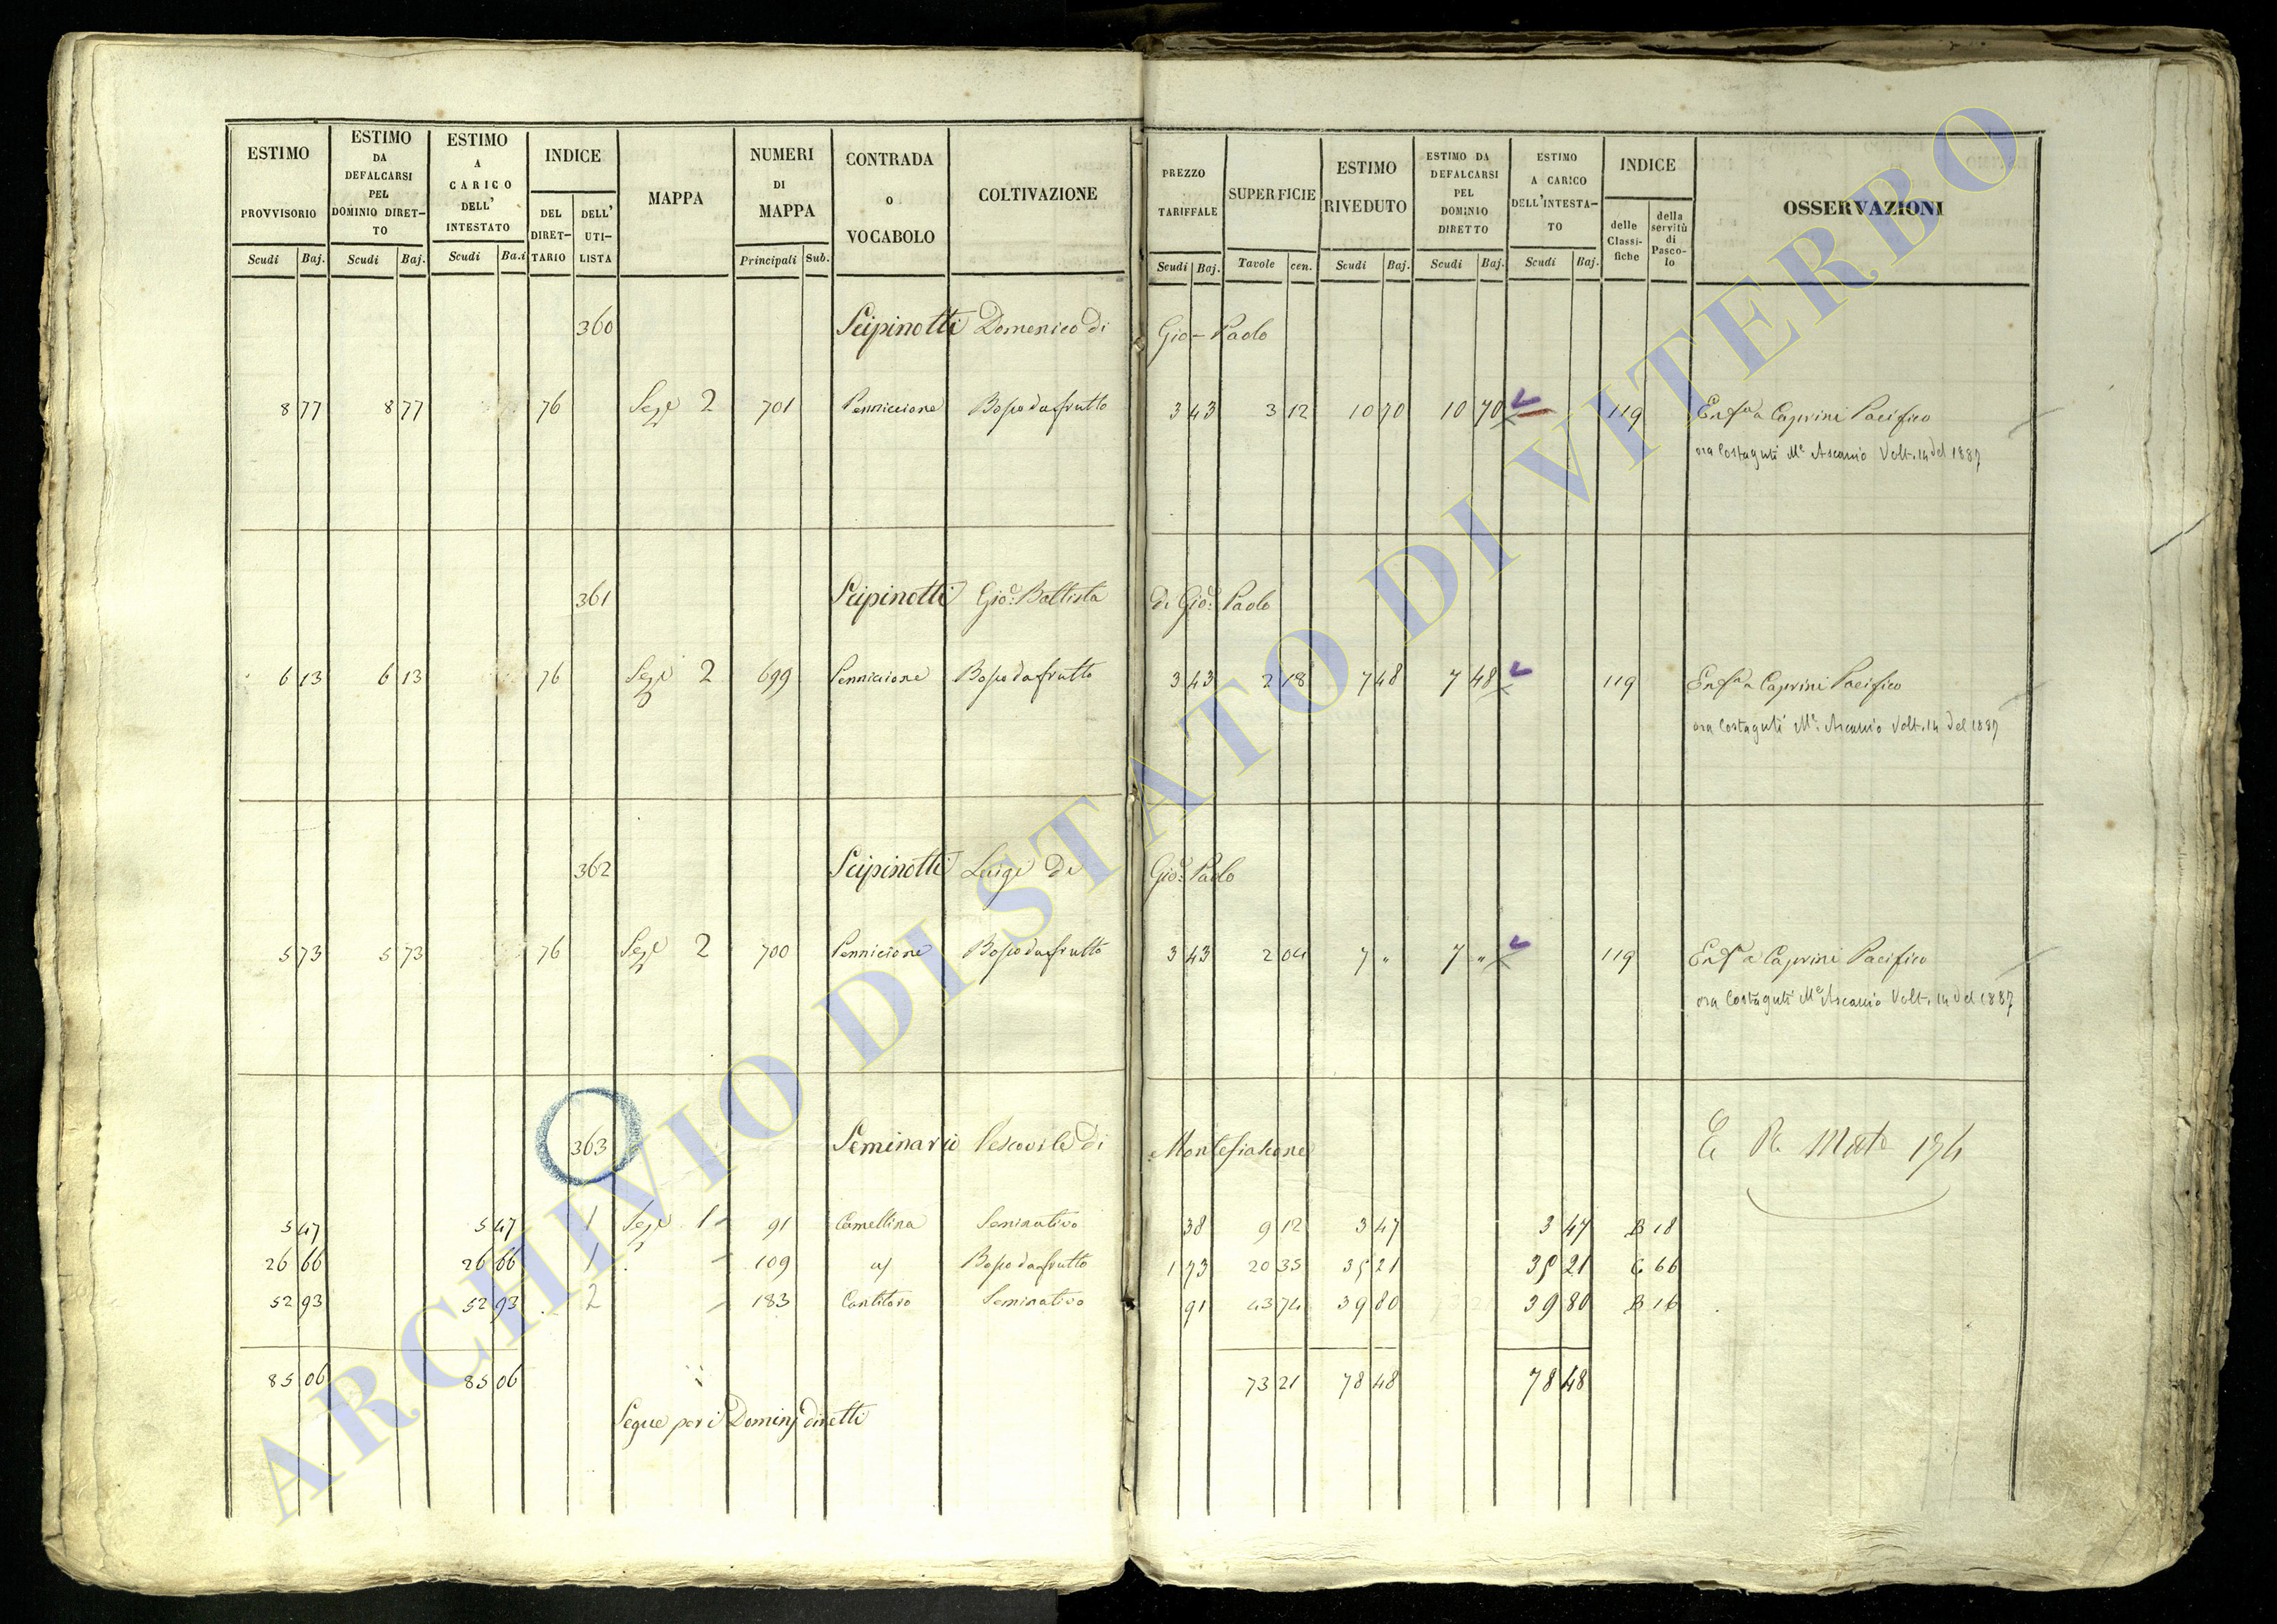 ESTIMO PROVVISORIO
Scudi Baj.
ESTIMO DA DEFALCARSI PEL DOMINIO DIRET-TO
Scudi Baj.
ESTIMO A CARICO DELL' INTESTATO
Scudi Ba.i
INDICE
DEL DIRET-TARIO
DELL' UTI-LISTA
MAPPA
NUMERI DI MAPPA
Principali Sub.
CONTRADA o VOCABOLO
COLTIVAZIONE
PREZZO TARIFFALE
Scudi Baj.
SUPERFICIE
Tavole cen.
ESTIMO RIVEDUTO
Scudi Baj.
ESTIMO DA DEFALCARSI PEL DOMINIO DIRETTO
Scudi Baj.
ESTIMO A CARICO DELL'INTESTA-TO
Scudi Baj.
INDICE
delle Classi-fiche
della servitù di Pasco-lo
OSSERVAZIONI
360 Scipinotti Domenico di Gio-Paolo
8 77 8 77 76 Sez.e 2 701 Pennicione Bosco da frutto 3 43 3 12 10 70 10 70 119 Enf.a a Caprini Pacifico
ora Costaguti M.e Ascanio Volt. 14 del 1887
361 Scipinotti Gio: Battista di Gio: Paolo
6 13 6 13 76 Sez.e 2 699 Pennicione Bosco da frutto 3 43 2 18 7 48 7 48 119 Enf.a a Caprini Pacifico
ora Costaguti M.e Ascanio Volt. 14 del 1887
362 Scipinotti Luigi di Gio: Paolo
5 73 5 73 76 Sez.e 2 700 Pennicione Bosco da frutto 3 43 2 04 7 " 7 " 119 Enf.a a Caprini Pacifico
ora Costaguti M.e Ascanio Volt. 14 del 1887
363 Seminario Vescovile di Montefiascone
5 47 5 47 1 Sez.e 1 91 Camellina Seminativo 38 9 12 3 47 3 47 B 18
26 66 26 66 1 109 Bosco da frutto 1 73 20 35 35 21 35 21 C 66
52 93 52 93 2 183 Seminativo 91 43 74 39 80 39 80 B 16
85 06 85 06 73 21 78 48 78 48
Segue per i Dominj diretti
ARCHIVIO DI STATO DI VITERBO